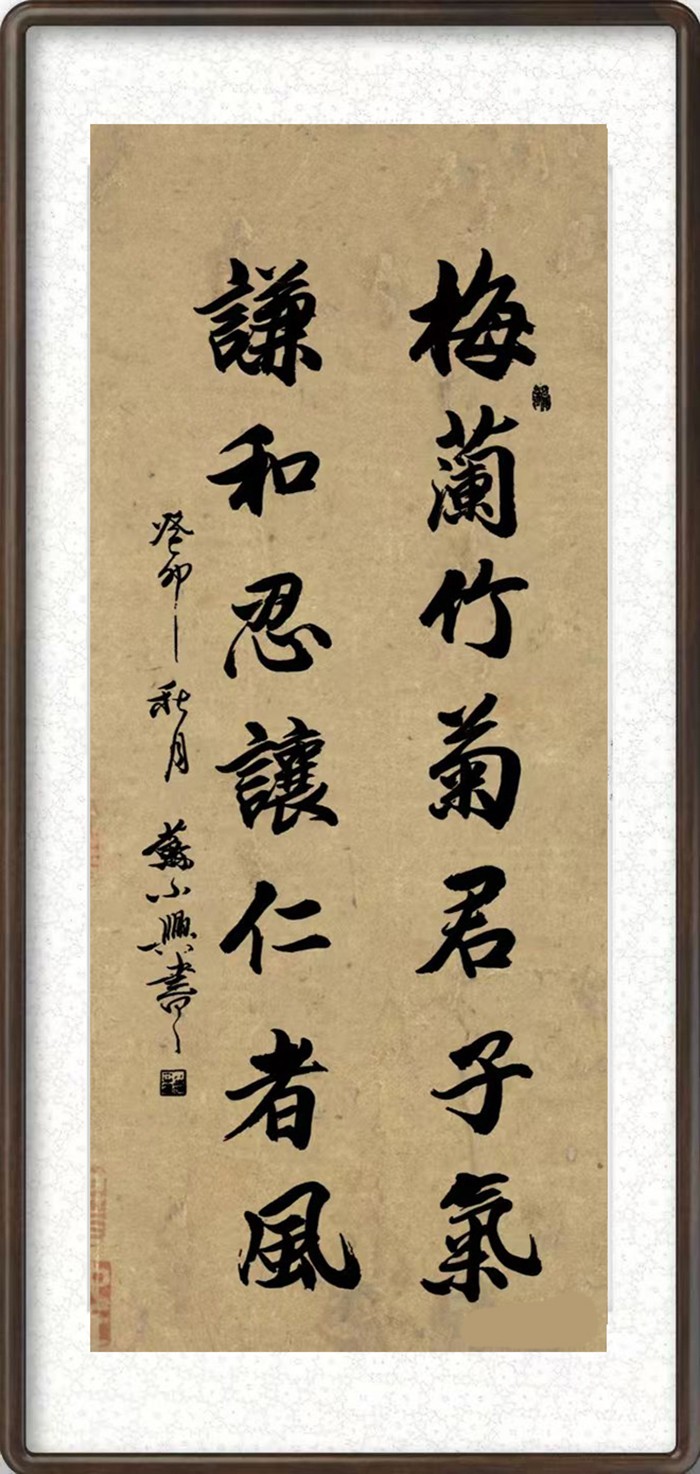 梅蘭竹菊君子氣
謙和忍讓仁者風
癸卯秋月蘇小興書